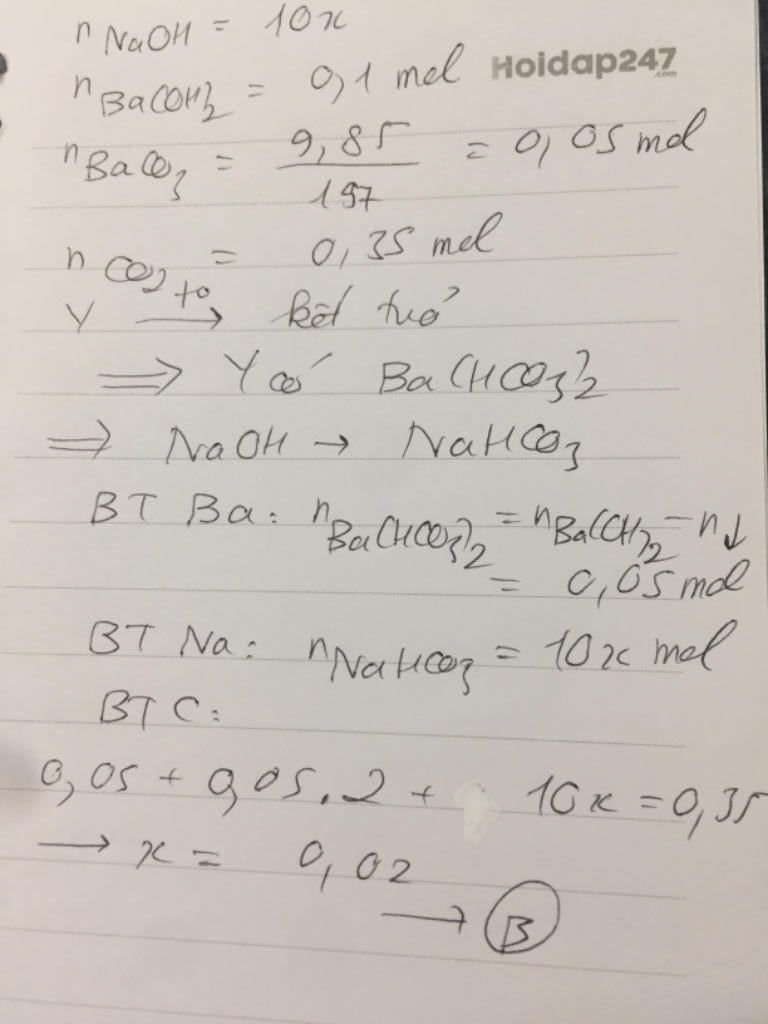 n NaOH = 10x
Hoidap247
.com
n Ba(OH)2 = 0,1 mol
n BaCO3 = 9,85 / 197 = 0,05 mol
n CO2 = 0,35 mol
Y t° → kết tủa
⇒ Y có Ba(HCO3)2
⇒ NaOH → NaHCO3
BT Ba: n Ba(HCO3)2 = n Ba(OH)2 - n↓
= 0,05 mol
BT Na: n NaHCO3 = 10x mol
BT C:
0,05 + 0,05.2 + 10x = 0,35
→ x = 0,02
→ B